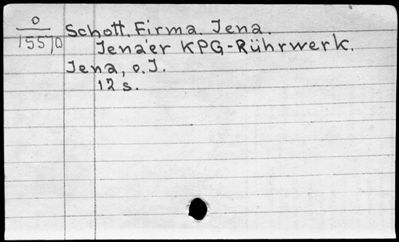 0
15570
Schott, Firma. Jena.
Jenaer KPG-Rührwerk.
Jena, o.J.
12 s.